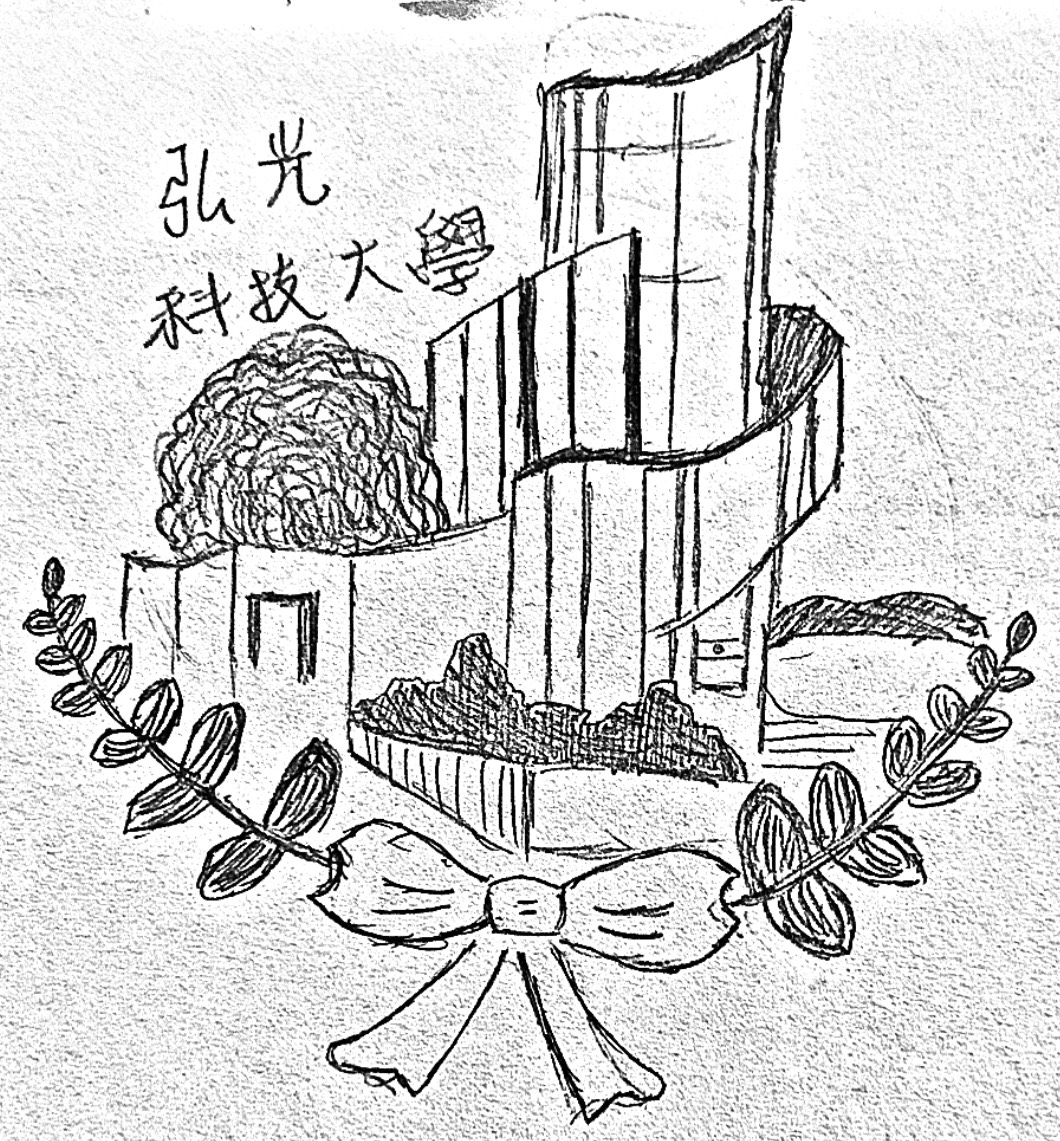 弘光
科技大學